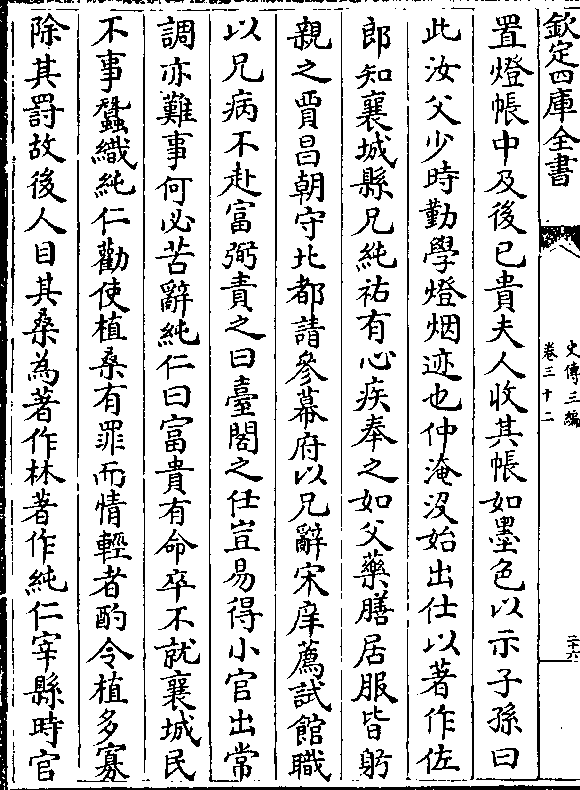 欽定四庫全書
史傳三編
卷三十二
二十六
置燈帳中及後已貴夫人收其帳如墨色以示子孫曰
此汝父少時勤學燈烟迹也仲淹沒始出仕以著作佐
郎知襄城縣兄純祐有心疾奉之如父藥膳居服皆躬
親之賈昌朝守北都請參幕府以兄辭宋庠薦試館職
以兄病不赴富弼責之曰臺閣之任豈易得小官出常
調亦難事何必苦辭純仁曰富貴有命卒不就襄城民
不事蠶織純仁勸使植桑有罪而情輕者酌令植多寡
除其罰故後人目其桑為著作林著作純仁宰縣時官